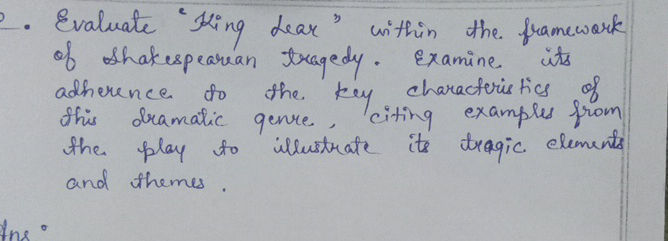 . Evaluate "King Lear" within the framework
of Shakespearean tragedy. Examine its
adherence to the key characteristics of
this dramatic genre, citing examples from
the play to illustrate its tragic elements
and themes.
Ans: